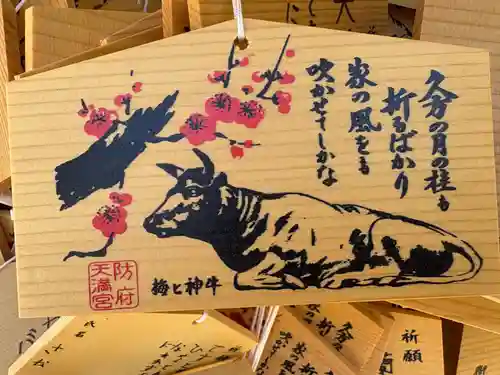 久方の月の桂も
折るばかり
家の風をも
吹かせてしかな
防府
天満宮
梅と神牛
祈願